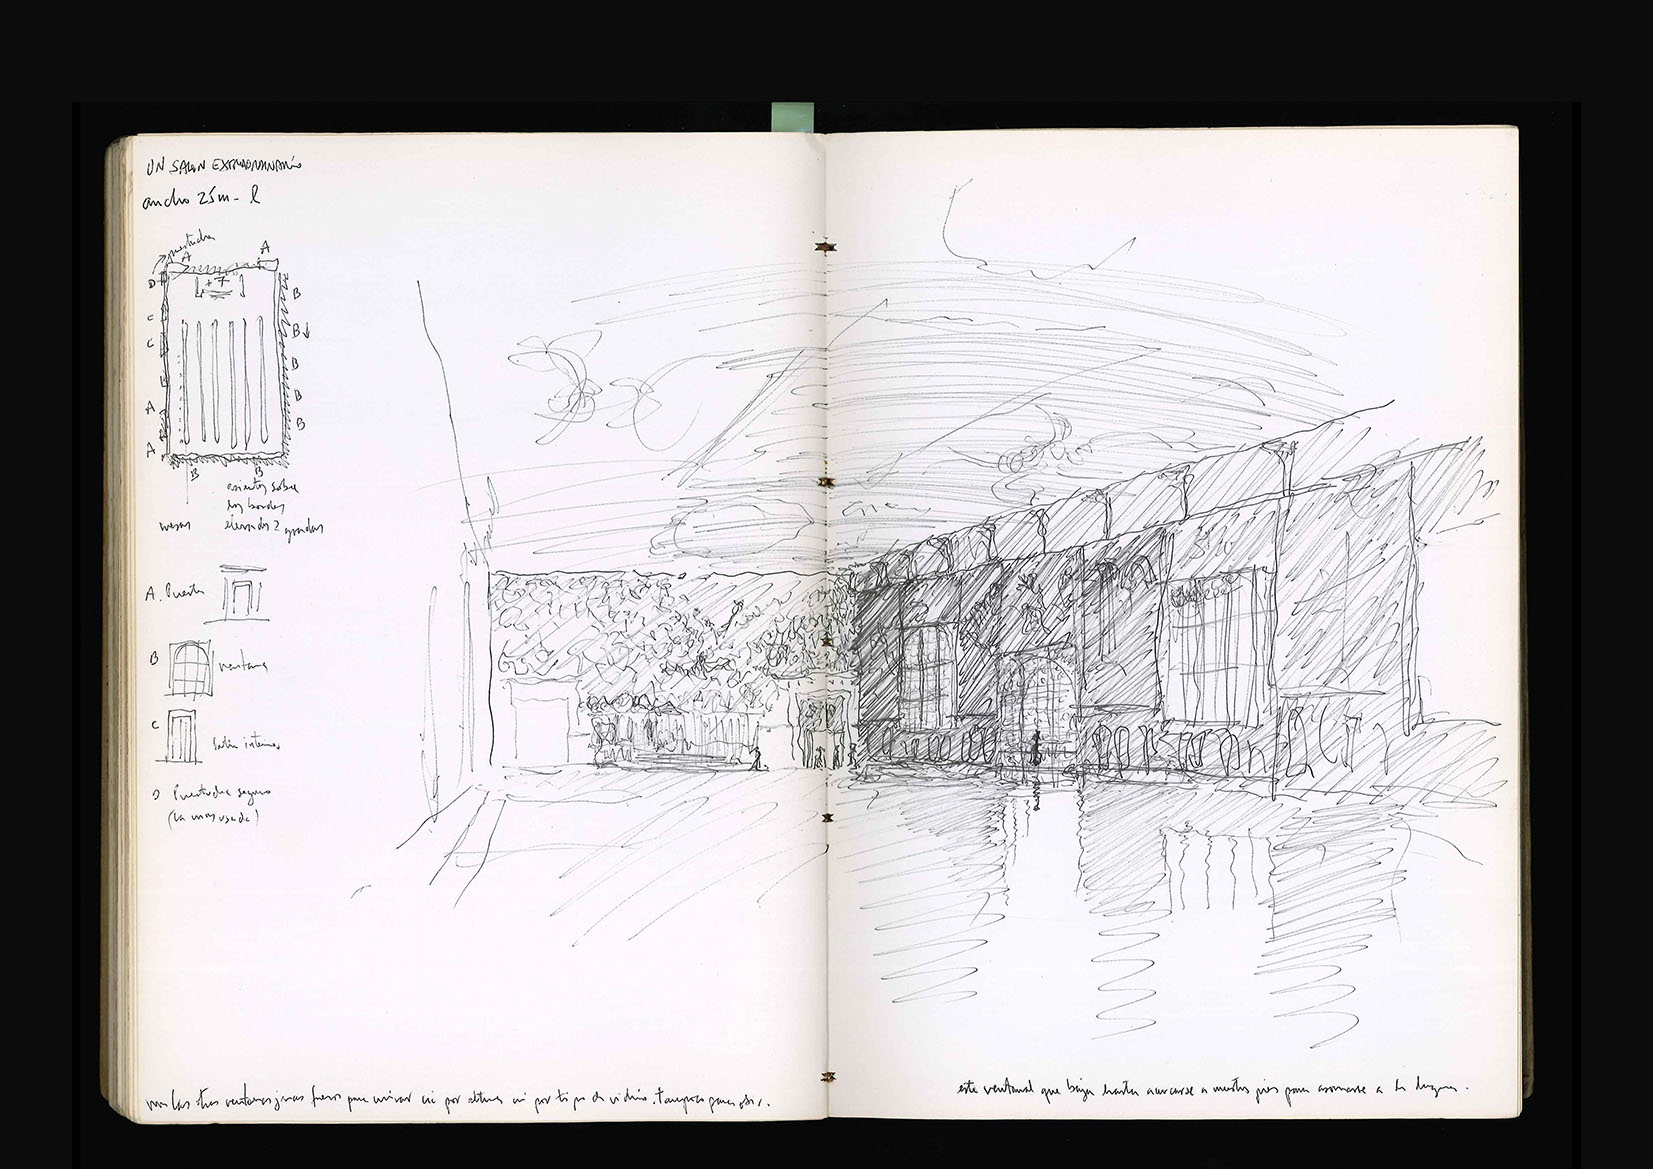 UN SALON EXTRAORDINARIO
ancho 25m - l
puertucha
A
A
D
+7
B
C
B
C
B
B
B
A
A
B
B
asientos sobre
los bordes
mesas
elevados 2 gradas
A. Puertas
B
ventana
C
Salón interno
D Puertucha segura
(la mas usada)
las otras ventanas fueron para mirar ni por altura ni por tipo de vidrio. tampoco
este ventanal que baja hasta acercarse a nuestros pies para asomarse a la laguna.